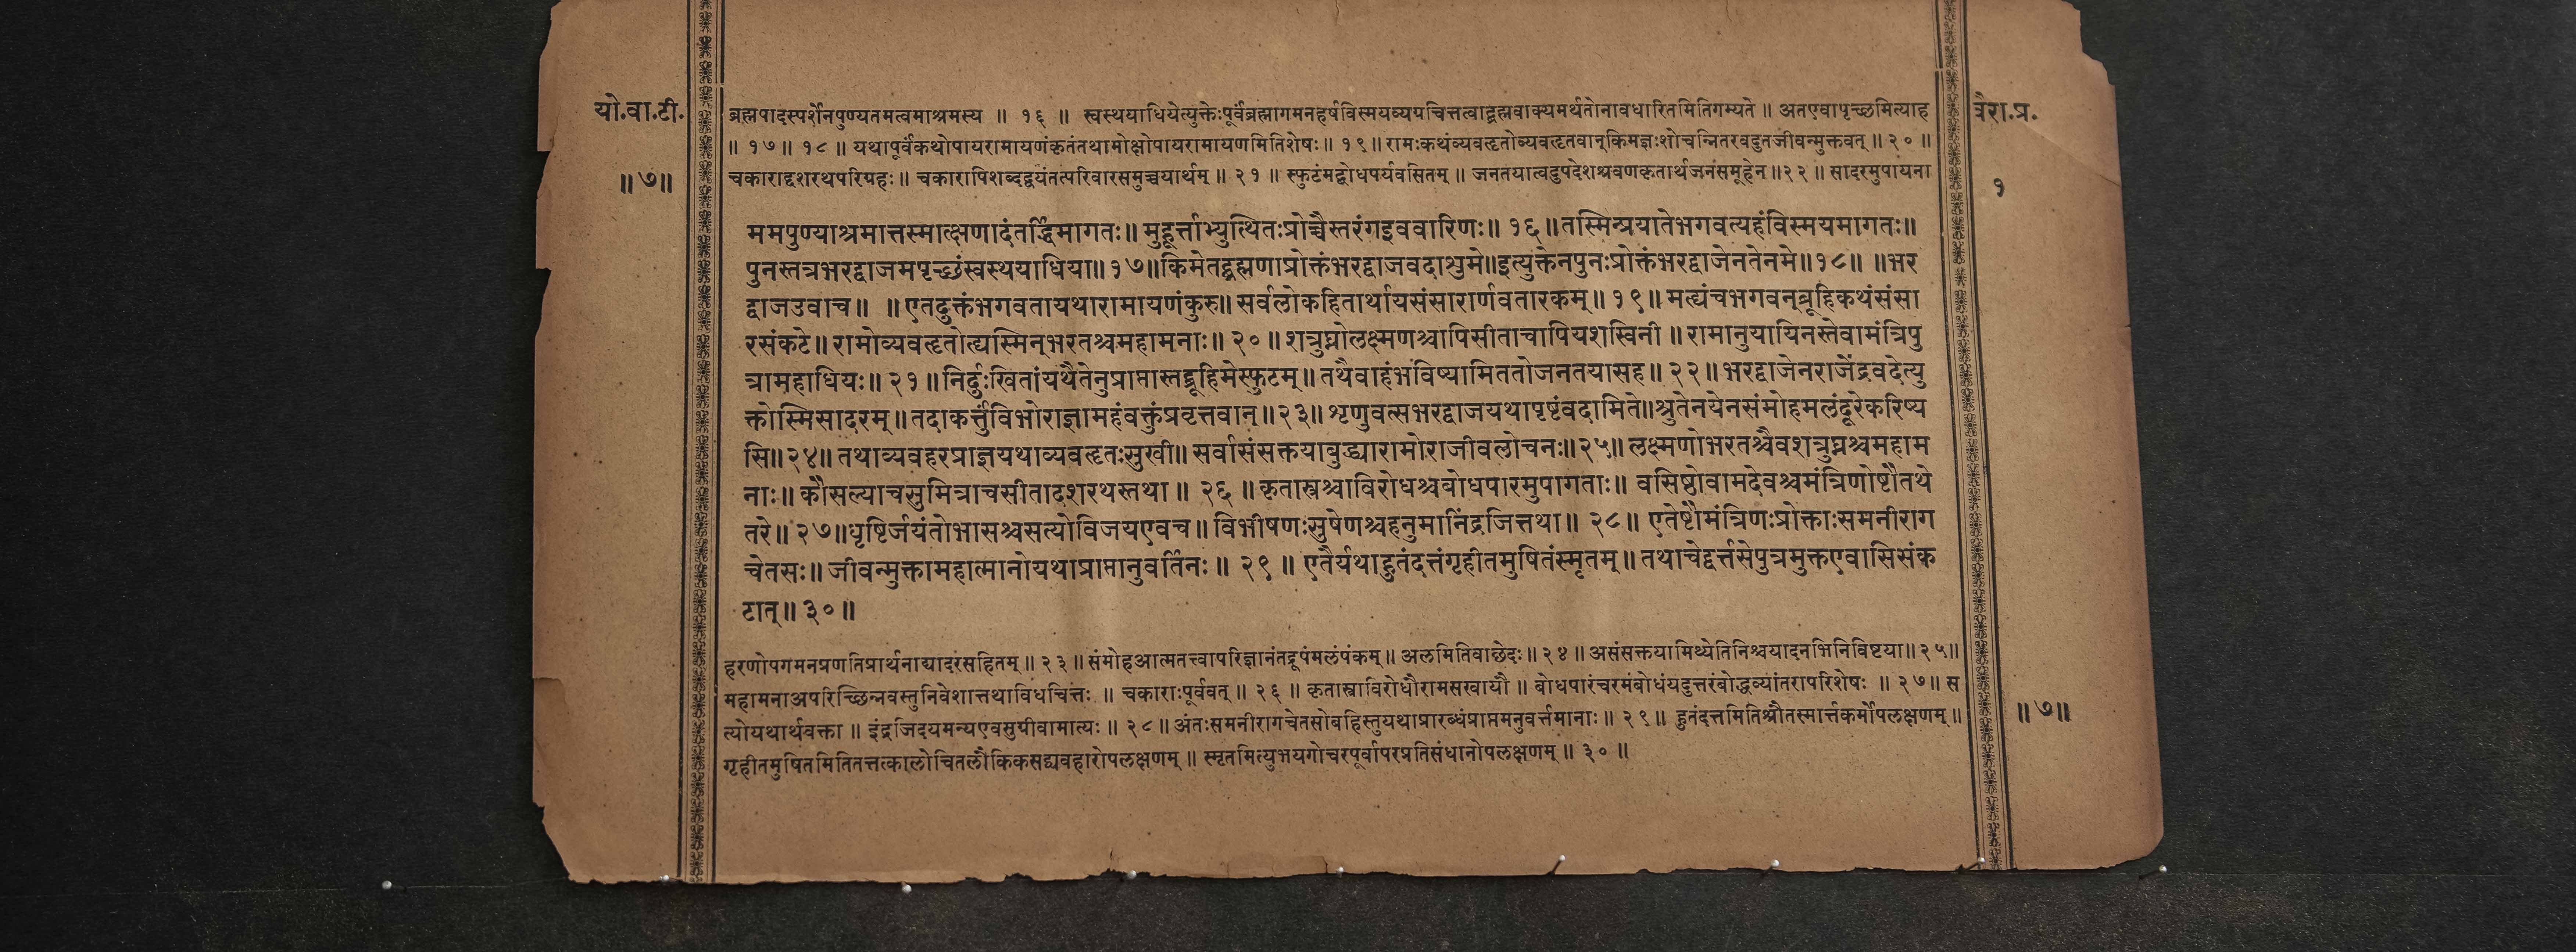 यो.वा.टी.
॥७॥
ब्रह्मपादस्पर्शेनपुण्यतमत्वमाश्रमस्य ॥ १६ ॥ स्वस्थयाधियेत्युक्तेःपूर्वंब्रह्मागमनहर्षविस्मयव्यग्रचित्तत्वाद्ब्रह्मवाक्यमर्थतोनावधारितमितिगम्यते ॥ अतएवापृच्छमित्याह
॥ १७ ॥ १८ ॥ यथापूर्वंकथोपायरामायणंकृतंतथामोक्षोपायरामायणमितिशेषः ॥ १९ ॥ रामःकथंव्यवहृतोव्यवहृतवान्किमज्ञःशोचन्नितरवदुतजीवन्मुक्तवत् ॥ २० ॥
चकाराद्दशरथपरिग्रहः ॥ चकारापिशब्दद्वयंतत्परिवारसमुच्चयार्थम् ॥ २१ ॥ स्फुटंमद्बोधपर्यवसितम् ॥ जनतयात्वदुपदेशश्रवणकृतार्थजनसमूहेन ॥२२ ॥ सादरमुपायना
ममपुण्याश्रमात्तस्मात्क्षणादंतर्द्धिमागतः॥ मुहूर्त्ताभ्युत्थितःप्रोच्चैस्तरंगइववारिणः॥ १६॥ तस्मिन्प्रयातेभगवत्यहंविस्मयमागतः॥
पुनस्तत्रभरद्वाजमपृच्छंस्वस्थयाधिया॥१७॥किमेतद्ब्रह्मणाप्रोक्तंभरद्वाजवदाशुमे॥इत्युक्तेनपुनःप्रोक्तंभरद्वाजेनतेनमे॥१८॥ ॥भर
द्वाजउवाच॥ ॥एतदुक्तंभगवतायथारामायणंकुरु॥ सर्वलोकहितार्थायसंसारार्णवतारकम्॥ १९॥ मह्यंचभगवन्ब्रूहिकथंसंसा
रसंकटे॥ रामोव्यवहृतोह्यस्मिन्भरतश्चमहामनाः॥ २०॥ शत्रुघ्नोलक्ष्मणश्चापिसीताचापियशस्विनी ॥ रामानुयायिनस्तेवामंत्रिपु
त्रामहाधियः॥ २१॥ निर्दुःखितांयथैतेनुप्राप्तास्तद्ब्रूहिमेस्फुटम्॥ तथैवाहंभविष्यामिततोजनतयासह॥ २२॥ भरद्वाजेनराजेंद्रवदेत्यु
क्तोस्मिसादरम्॥ तदाकर्त्तुंविभोराज्ञामहंवक्तुंप्रवृत्तवान्॥२३॥ शृणुवत्सभरद्वाजयथापृष्टंवदामिते॥श्रुतेनयेनसंमोहमलंदूरेकरिष्य
सि॥२४॥ तथाव्यवहरप्राज्ञयथाव्यवहृतःसुखी॥ सर्वासंसक्तयाबुद्ध्यारामोराजीवलोचनः॥२५॥ लक्ष्मणोभरतश्चैवशत्रुघ्नश्चमहाम
नाः॥ कौसल्याचसुमित्राचसीतादशरथस्तथा॥ २६ ॥कृतास्त्रश्चाविरोधश्चबोधपारमुपागताः॥ वसिष्ठोवामदेवश्चमंत्रिणोष्टौतथे
तरे॥ २७॥धृष्टिर्जयंतोभासश्चसत्योविजयएवच॥ विभीषणःसुषेणश्चहनुमानिंद्रजित्तथा॥ २८॥ एतेष्टौमंत्रिणःप्रोक्ताःसमनीराग
चेतसः॥ जीवन्मुक्तामहात्मानोयथाप्राप्तानुवर्तिनः॥ २९ ॥ एतैर्यथाहुतंदत्तंगृहीतमुषितंस्मृतम्॥ तथाचेद्वर्त्तसेपुत्रमुक्तएवासिसंक
टात्॥ ३०॥
हरणोपगमनप्रणतिप्रार्थनाद्यादरसहितम् ॥ २३ ॥ संमोहआत्मतत्त्वापरिज्ञानंतद्रूपंमलंपंकम्॥ अलमितिवाछेदः॥ २४ ॥ असंसक्तयामिथ्येतिनिश्चयादनभिनिविष्टया॥ २५॥
महामनाअपरिच्छिन्नवस्तुनिवेशात्तथाविधचित्तः ॥ चकाराःपूर्ववत् ॥ २६ ॥ कृतास्त्राविरोधौरामसखायौ ॥ बोधपारंचरमंबोधंयदुत्तरंबोद्धव्यांतरापरिशेषः ॥ २७॥ स
त्योयथार्थवक्ता ॥ इंद्रजिदयमन्यएवसुग्रीवामात्यः ॥ २८ ॥ अंतःसमनीरागचेतसोबहिस्तुयथाप्रारब्धंप्राप्तमनुवर्त्तमानाः॥ २९ ॥ हुतंदत्तमितिश्रौतस्मार्त्तकर्मोपलक्षणम्॥
गृहीतमुषितमितितत्तत्कालोचितलौकिकसद्व्यवहारोपलक्षणम् ॥ स्मृतमित्युभयगोचरपूर्वापरप्रतिसंधानोपलक्षणम् ॥ ३० ॥
वैरा.प्र.
१
॥७॥